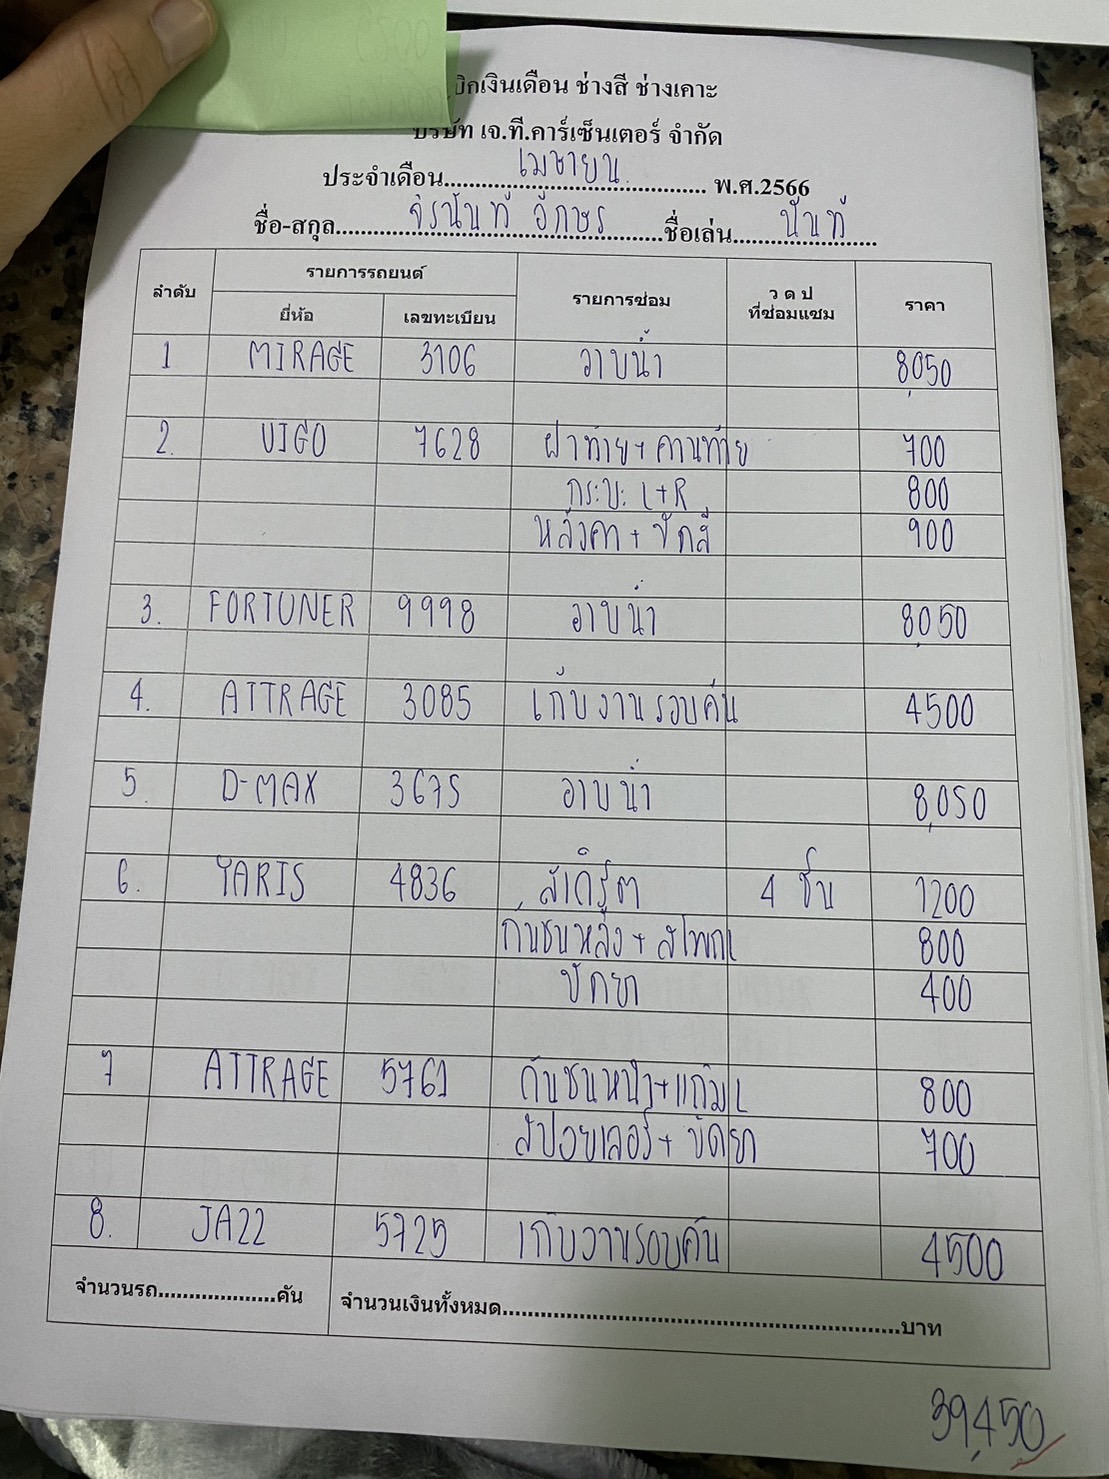 บิกเงินเดือน ช่างสี ช่างเคาะ
บริษัท เจ.ที.คาร์เซ็นเตอร์ จำกัด
ประจำเดือน เมษายน พ.ศ.2566
ชื่อ-สกุล จิรนันท์ อักษร ชื่อเล่น นันท์
ลำดับ รายการรถยนต์ รายการซ่อม ว ด ป ที่ซ่อมแซม ราคา
ยี่ห้อ เลขทะเบียน
1 MIRAGE 3106 อาบน้ำ 8,050
2. VIGO 7628 ฝาท้าย+คานท้าย 700
กระบะ L+R 800
หลังคา + ขัดสี 900
3. FORTUNER 9998 อาบน้ำ 8,050
4. ATTRAGE 3085 เก็บงานรอบคัน 4500
5. D-MAX 3675 อาบน้ำ 8,050
6. YARIS 4836 สเกิร์ต 4 ชิ้น 1200
กันชนหลัง + สโพก L 800
ขัดยา 400
7 ATTRAGE 5761 กันชนหน้า+แก้ม L 800
สปอยเลอร์ + ขัดยา 700
8. JAZZ 5725 เก็บงานรอบคัน 4500
จำนวนรถ...................คัน จำนวนเงินทั้งหมด..................................................................บาท
39,450